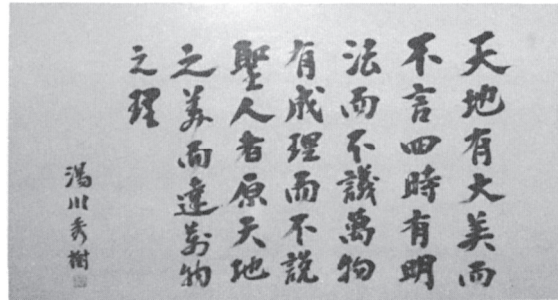 天地有大美而
不言四時有明
法而不議萬物
有成理而不說
聖人者原天地
之美而達萬物
之理
湯川秀樹